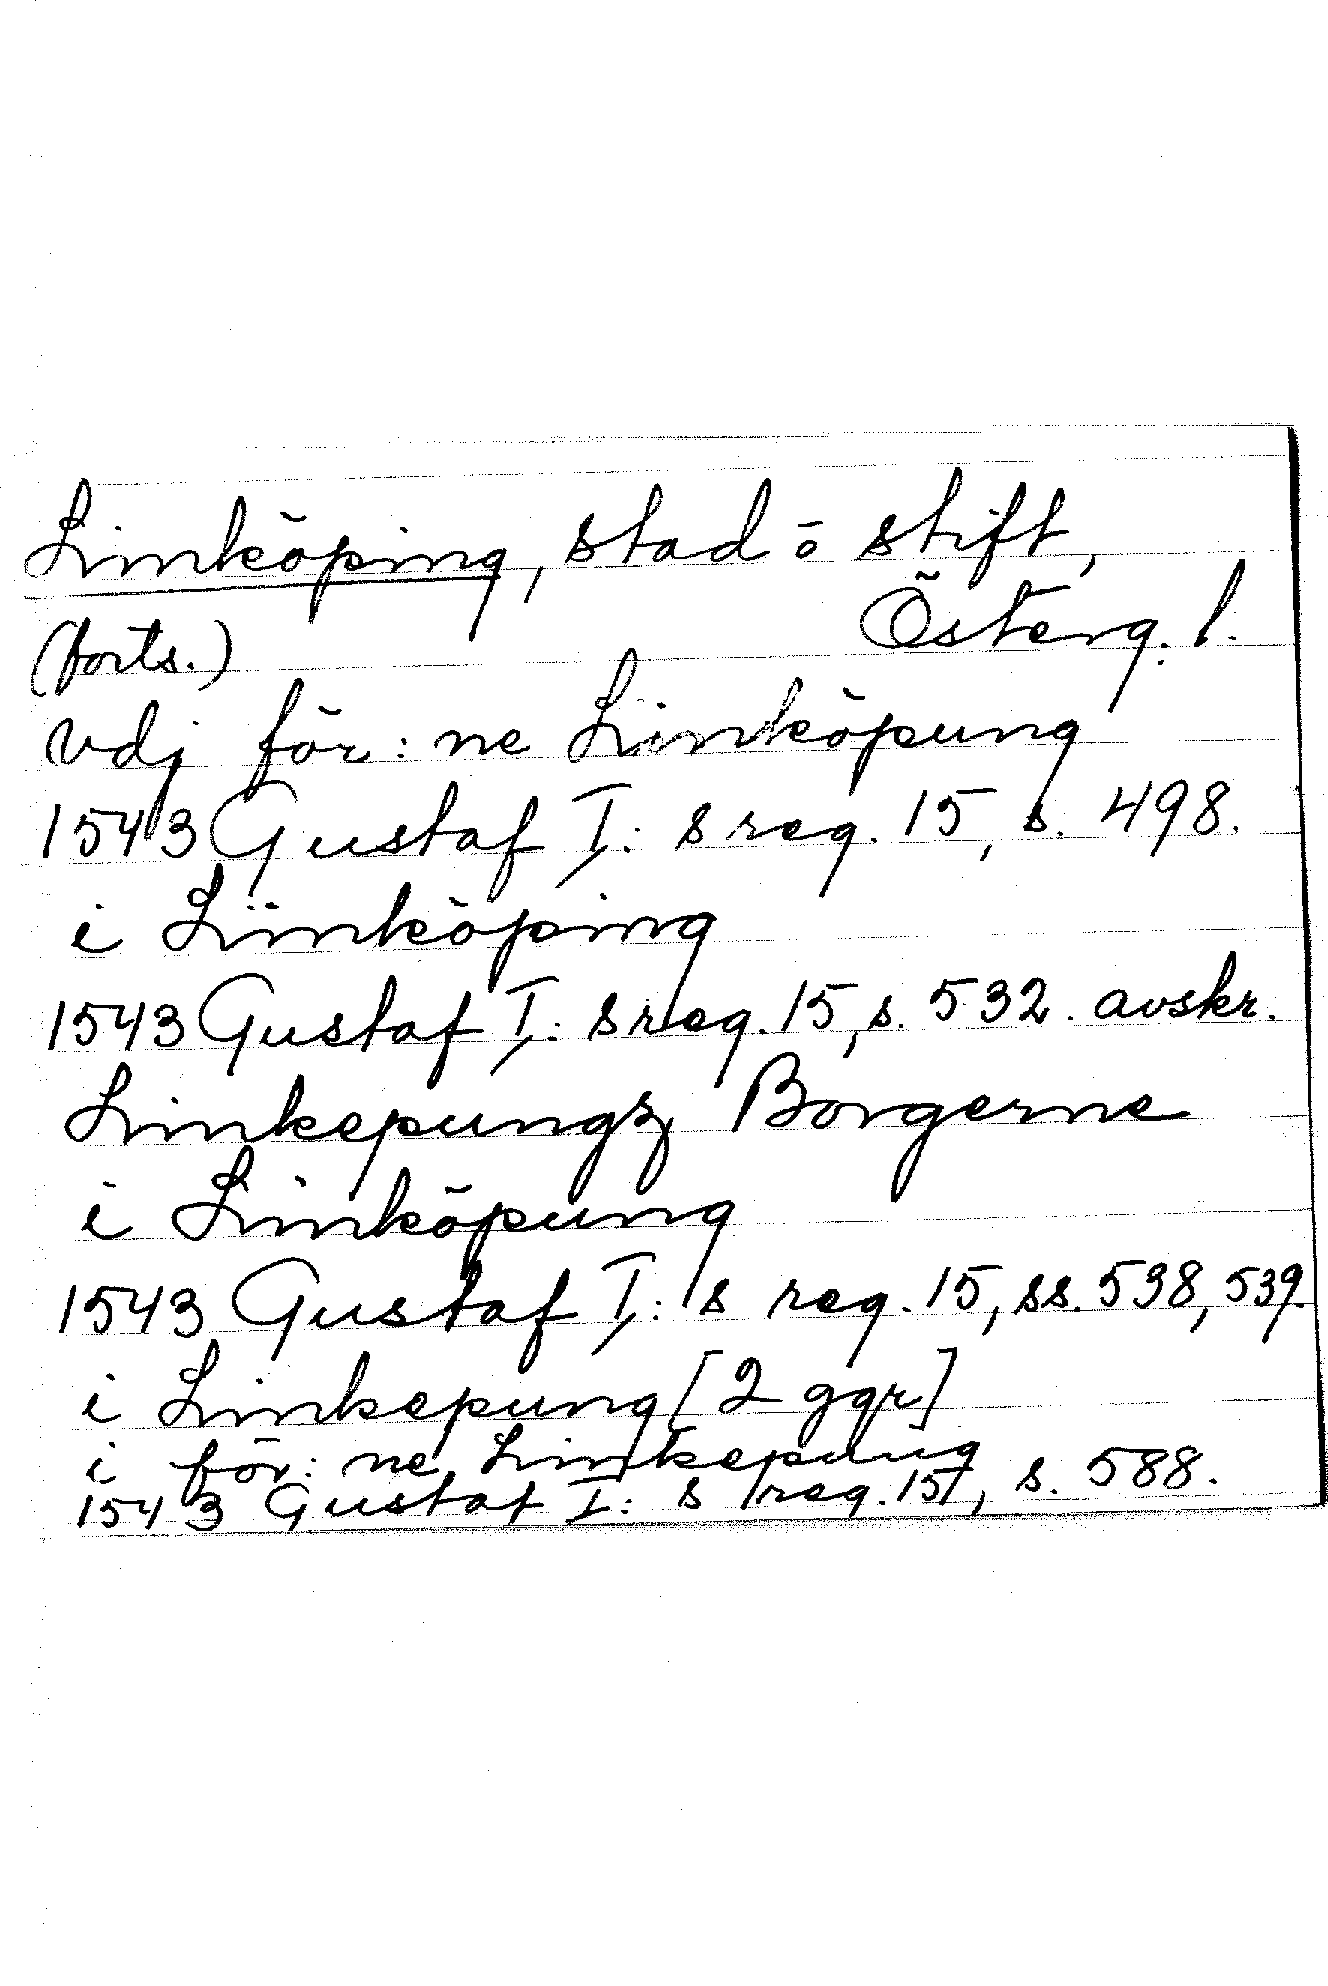 Linköping, stad o stift,
Österg. l.
(forts.)
vdj för: ne Linköpung
1543 Gustaf I: s reg. 15, s. 498.
i Liinköping
1543 Gustaf I: s reg. 15, s. 532. avskr.
Linkepungz Borgerne
i Linköpung
1543 Gustaf I: s reg. 15, ss. 538, 539.
i Linkepung [2 ggr]
i för: ne Linkepung
1543 Gustaf I: s reg. 15, s. 588.